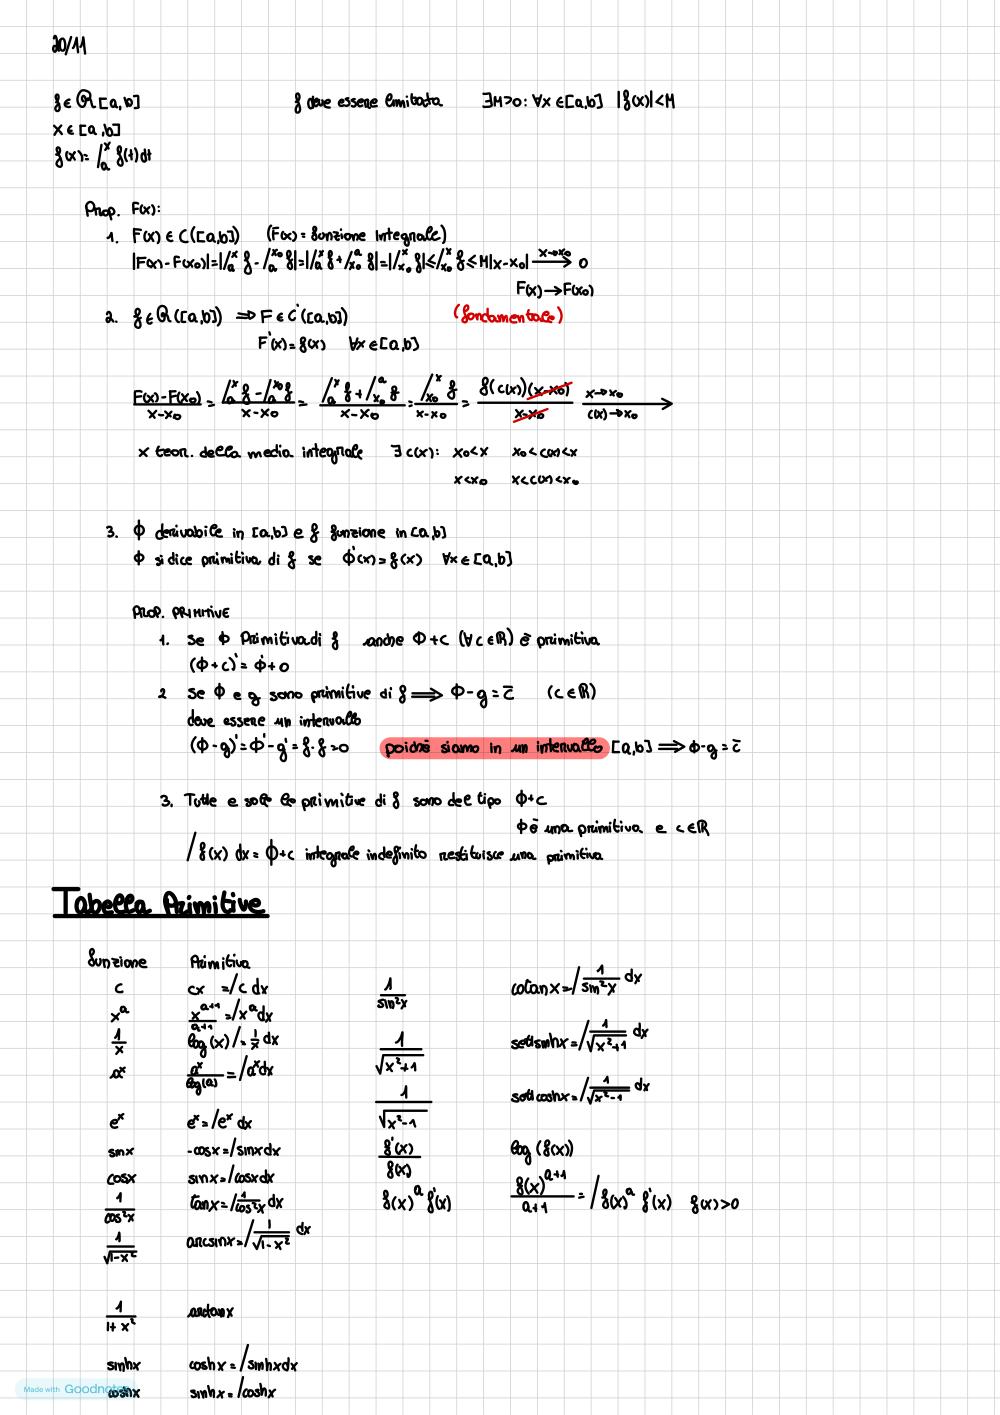 20/11
f ∈ R [a,b]    f deve essere limitata    ∃M>0: ∀x ∈[a,b] |f(x)|<M
x ∈ [a,b]
f(x)= ∫_a^x f(t)dt
Prop. F(x):
1. F(x) ∈ C([a,b])    (F(x) = funzione integrale)
|F(x)-F(x₀)|=|∫_a^x f - ∫_a^x₀ f|=|∫_a^x f + ∫_x₀^a f|=|∫_x₀^x f|≤∫_x₀^x f ≤ M|x-x₀| —x→x₀→ 0
F(x)→F(x₀)
2. f ∈ R([a,b]) ⇒ F ∈ C'([a,b])    (fondamentale)
F'(x)=f(x) ∀x ∈[a,b]
(F(x)-F(x₀))/(x-x₀) = (∫_a^x f - ∫_a^x₀ f)/(x-x₀) = (∫_a^x f + ∫_x₀^a f)/(x-x₀) = (∫_x₀^x f)/(x-x₀) = (f(c(x))(x-x₀))/(x-x₀) —x→x₀ c(x)→x₀→
x teor. della media integrale    ∃ c(x): x₀<x    x₀<c(x)<x
x<x₀    x<c(x)<x₀
3. ϕ derivabile in [a,b] e f funzione in [a,b]
ϕ si dice primitiva di f se ϕ'(x)=f(x) ∀x ∈[a,b]
PROP. PRIMITIVE
1. Se ϕ Primitiva di f anche ϕ+c (∀c∈ℝ) è primitiva
(ϕ+c)'= ϕ'+0
2 Se ϕ e g sono primitive di f ⇒ ϕ-g = c̄    (c∈ℝ)
deve essere un intervallo
(ϕ-g)'=ϕ'-g'=f-f=0    poichè siamo in un intervallo [a,b] ⇒ ϕ-g = c̄
3. Tutte e sole le primitive di f sono del tipo ϕ+c
ϕ è una primitiva e c∈ℝ
∫f(x) dx = ϕ+c integrale indefinito restituisce una primitiva
Tabella Primitive
funzione    Primitiva
c    cx =∫c dx
x^a    x^(a+1)/(a+1) =∫x^a dx
1/x    log(x) ∫= 1/x dx
a^x    a^x/log(a) = ∫a^x dx
e^x    e^x=∫e^x dx
sinx    -cosx=∫sinxdx
cosx    sinx=∫cosxdx
1/cos²x    tanx=∫1/cos²x dx
1/√(1-x²)    arcsinx=∫1/√(1-x²) dx
1/(1+x²)    arctanx
sinhx    coshx=∫sinhxdx
coshx    sinhx=∫coshx
1/sin²x    cotanx=∫1/sin²x dx
1/√(x²+1)    settsinhx=∫1/√(x²+1) dx
1/√(x²-1)    settcoshx=∫1/√(x²-1) dx
f'(x)/f(x)    log (f(x))
f(x)^a f'(x)    f(x)^(a+1)/(a+1) = ∫f(x)^a f'(x)    f(x)>0
Made with Goodnotes